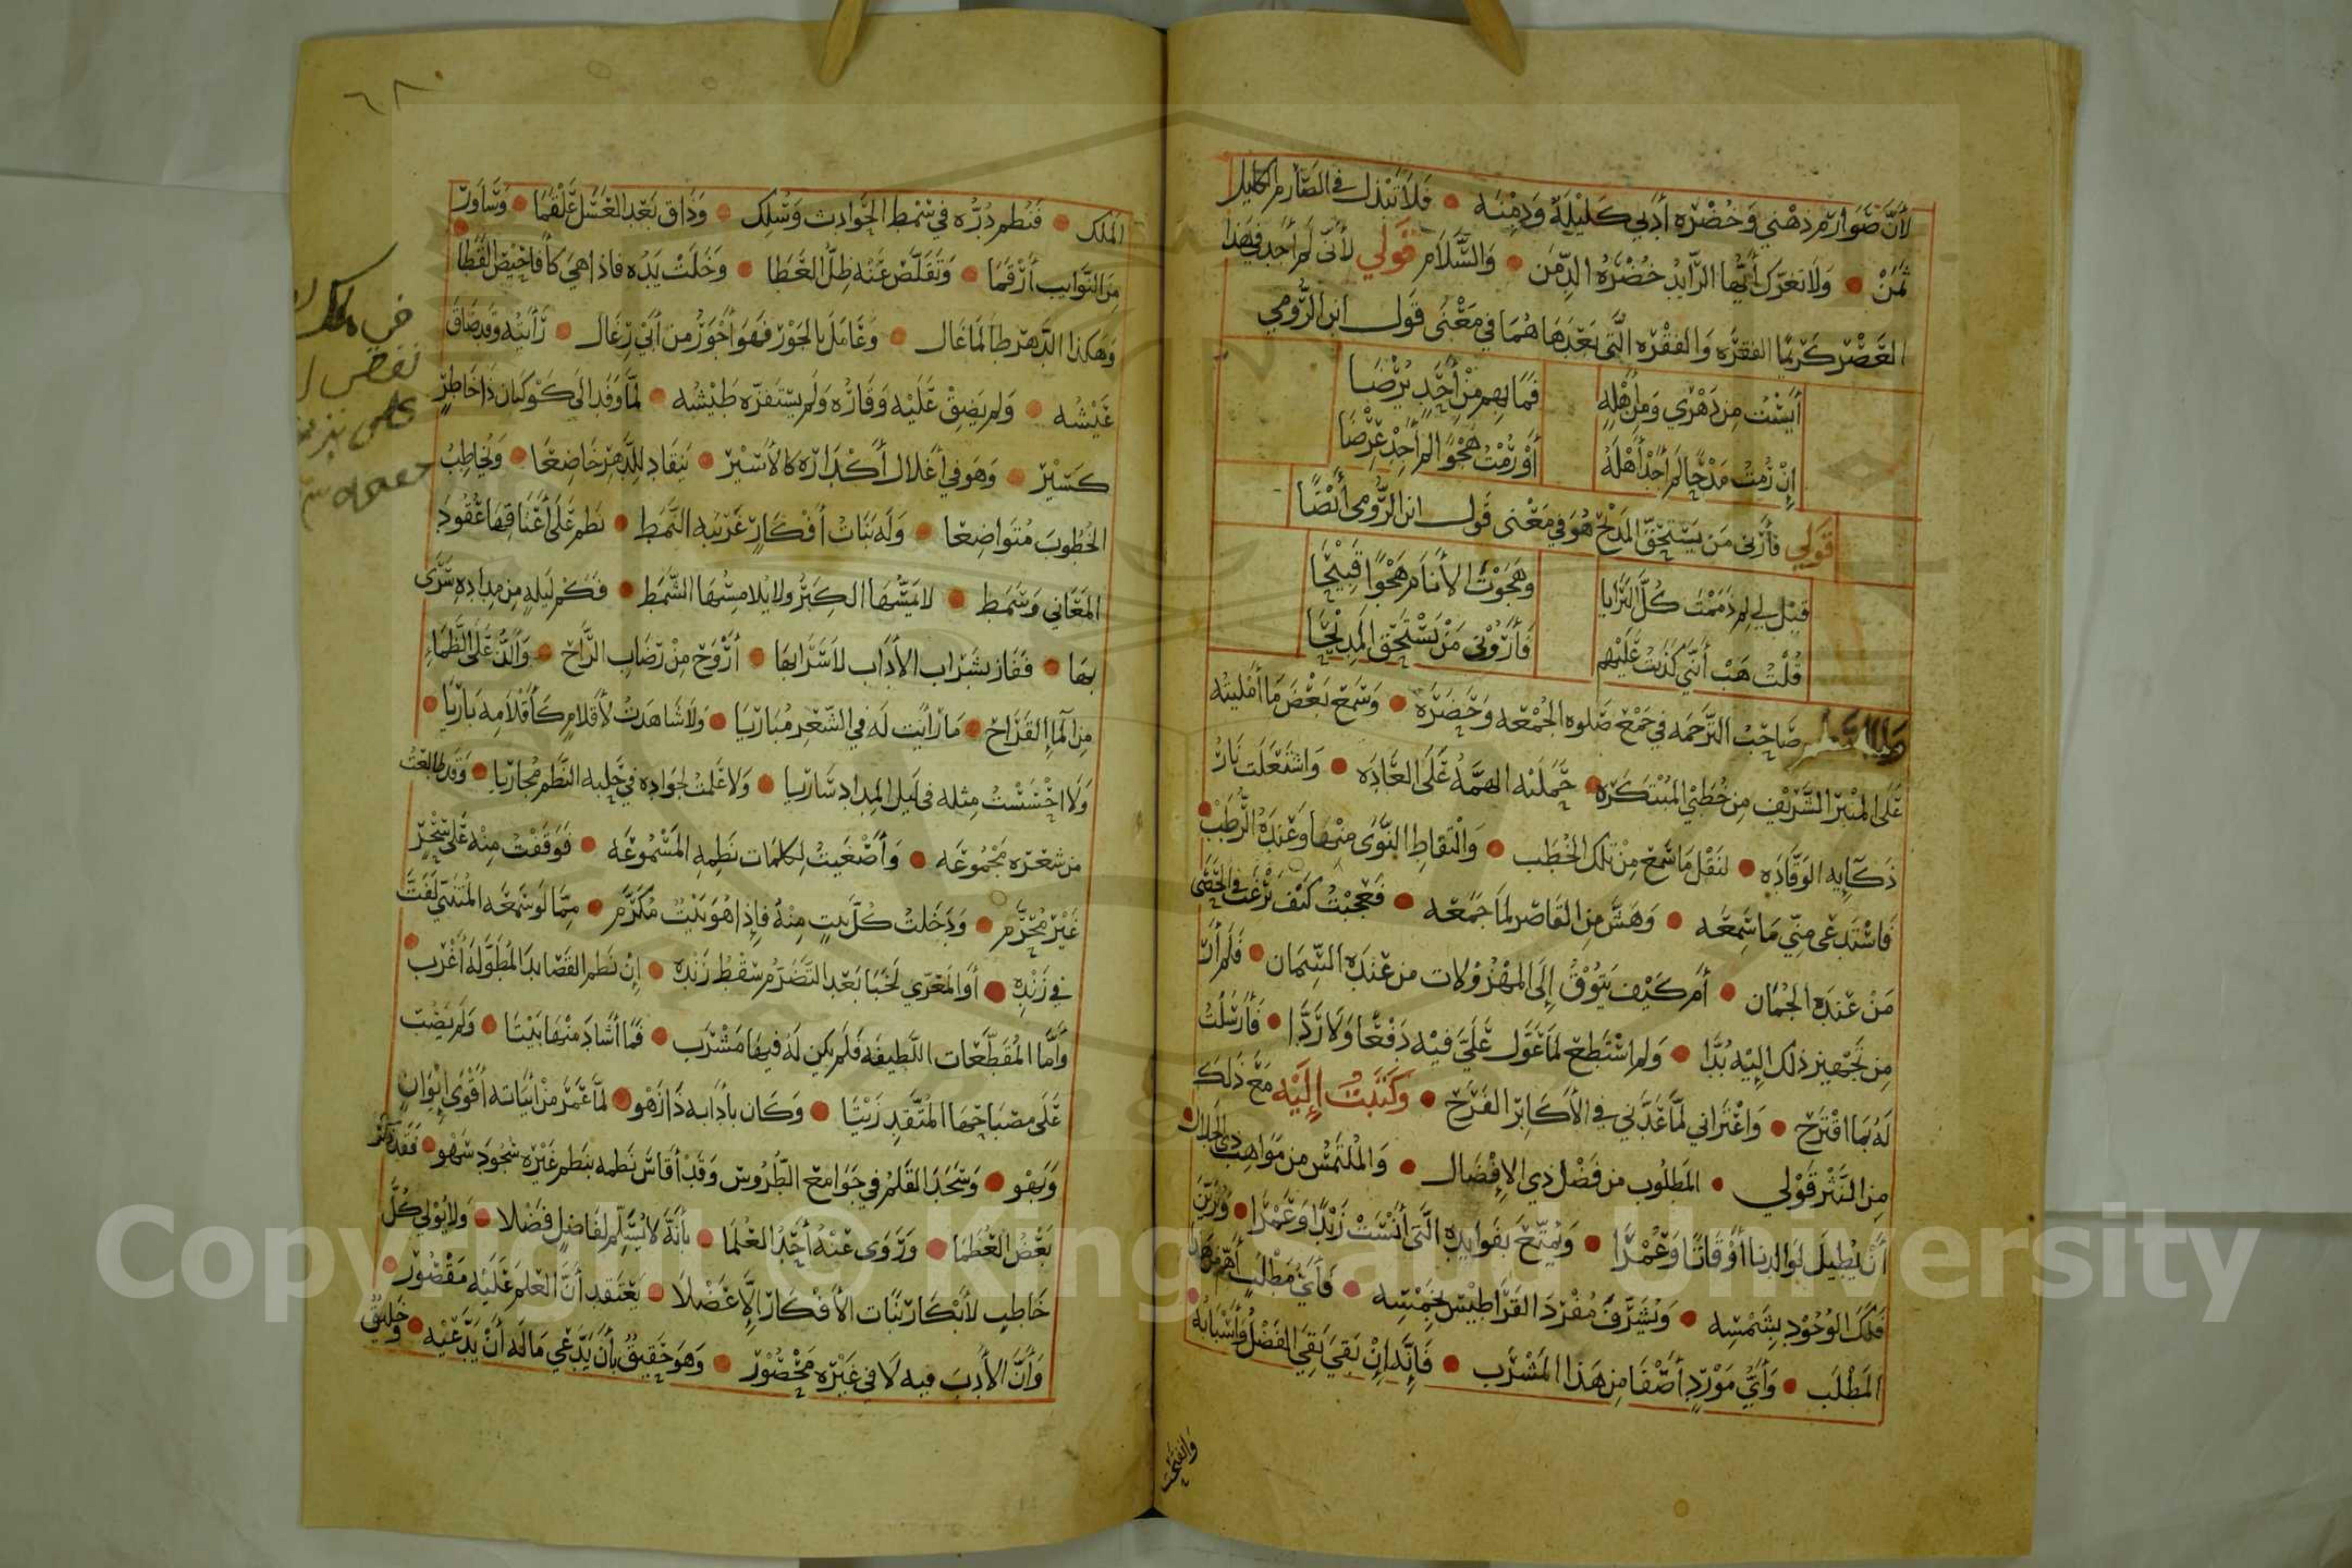 لأنّ صَوارم ذهني وَخُضْره أدبي كَليْلَةٌ وَدِمْنَه • فلا تبْذل في الصّارم الكليل
ثمَنْ • وَلا تغرّك أيّها الرّايدُ خُضْرَةُ الدِّمَن • وَالسَّلام قَولي لأنّي لم أجد في هذا
العَصْر كَريمًا الفقره وَالفقْره الّتي بَعْدَهَا هُمَا في مَعْنى قَول ابن الرّومي
أيسْتُ مِن دَهْري وَمِن أهْلِهِ فمَا بهم مِنْ أحَدٍ يُرْضَا
إنْ رُمتُ مَدْحًا لم أجدْ أهْلَهُ أوْ رُمْتُ هَجْوًا لم أجِدْ عِرْضَا
قَولي فأرني مَن يَسْتحقّ المدْح هُوَ في مَعْنى قَول ابن الرُّومي أيْضًا
قيْل لي لِم ذمَمْتَ كُلَّ البَرَايا وَهَجَوْتَ الأنَام هَجْوًا قَبِيْحًا
قُلْتُ هَبْ أنّني كذَبْتُ عَلَيْهم فَأرُوْني مَنْ يَسْتَحِقّ المَدِيْحَا
صَاحِبُ التّرْجَمَه في جَمْع صَلوه الجُمْعَه وَحَضَره • وَسَمع بَعْضَ مَا أمْليتُه
عَلى المنْبَر الشَّريْف مِن خُطَبي المُبْتَكَرَه • حَمَلتْه الهمَّهُ عَلى العَادَه • وَاشتَعَلَت نَارُ
ذَكَايِه الوَقّادَه • لنَقْل مَا سَمِعَ مِنْ تلكَ الخُطَب • وَالْتقاطِ النَّوى منْهَا وَعَندَهُ الرُّطَبْ •
فَاسْتَدعَى مِنّي مَا سَمِعَه • وَهَشَّ مِن القَاصر لمَا جَمَعَه • فَعَجِبْتُ كَيْفَ يَرْغَبُ في الحَصَى
مَنْ عَندَهُ الجُمَان • أم كَيْف يَتوُقُ إلَى المهْزُوْلات مَن عَندَه السّمَان • فَلَم أرَ
مِن تَجْهيز ذلك اليْه بُدَّا • وَلم أسْتَطِعْ لمَا عَوَّل عَليَّ فيْه دَفْعًا وَلا رَدًّا • فَأرْسَلْتُ
لَهُ بمَا اقْتَرَح • وَاعْتَرَاني لمّا عَدَّني في الأكَابِر الفَرَح • وَكتَبْتُ إلَيْه مَعَ ذَلكَ
مِن النَّثْر قَوْلي • المَطلُوب من فَضْل ذي الإفْضَال • وَالمُلْتَمَسُ من مَوَاهِب ذي الجَلال •
أنْ يُطِيلَ لمَوالدنا أوْقَاتًا وَعُمْرًا • وَيُمَتّعَ بفَوَايِده الّتي أنْسَتْ زَيْدًا وَعَمْرًا • وَيُزَيّنَ
فَلَكَ الوُجُوْد بشَمْسِه • وَيُشَرّفَ مُفْرَدَ القَرَاطيْس بخَمْسِه • فَأيُّ مَطْلَبٍ أهَمّ مِن هَذا
المَطْلَب • وَأيُّ مَوْردٍ أصْفَا مِن هَذا المَشْرَب • فَإنَّه إنْ بَقيَ بَقِيَ الفَضْلُ وَأسْبَابُه •
وَانفتحت
٦٨٠
الملك • فَنُطم دُرُّه في سْمْط الحَوادِث وَسُلِك • وَذَاق بَعْد العَسَل عَلْقَمَا • وَسَاوَرَ
مِن النَّوايب أرْقَمَا • وَتَقَلَّصَ عَنْه ظِلُّ العَطَا • وَخَلَتْ يَدُه فاذا هيَ كأفَاحِيْصِ القَطَا
وَهكذا الدّهر طَالَمَا غَال • وَعَامَلَ بالجَوْر فَهوَ أجْوَرُ من أبي رِغَال • رَأيتُه وَقد ضَاقَ
عَيْشُه • وَلم يَضِقْ عَلَيْه وَقَارُه وَلَم يسْتَفزّه طَيْشُه • لمّا وَفَد الى كَوْكبَان ذَا خَاطِرٍ
كَسَيْر • وَهوَ في أغْلال أكْدَاره كالأسَيْر • يَنقَاد للدَّهر خَاضِعَا • وَيُخَاطِبُ
الخُطُوبَ مُتوَاضِعَا • وَلَه بَنَاتُ أفْكَارٍ غَريْبه النّمَط • نظم عَلى أعْنَاقِهَا عُقُودَ
المَعَاني وَسَمَط • لا يَمَسُّهَا الكِبَرُ ولا يُلامِسُهَا الشَّمَط • فَكَم ليْلَه مِن مدَادِه سَرَى
بهَا • فَفَاز بشَرَاب الأدَاب لا سَرَابهَا • أرْوَحَ مِنْ رُضَاب الرَّاح • وَألَذَّ عَلَى الظَّمَاء
مِن المَاءِ القَرَاح • مَا رَأيْت لَه في الشّعْر مُبَاريَا • وَلا شَاهَدتُ لأقْلامٍ كَأقْلامِه بَاريَا •
وَلا احْسَسْتُ مِثلَه في لَيْل المِدَاد سَاريَا • وَلا عَلمْتُ لجَوَاده في حَلْبه النّظم مُجَاريَا • وَقَد طَالَعْتُ
مِن شعْره مَجْمُوعَه • وَأصْغَيتُ لِكلمَات نظمِه المَسْمُوعَه • فَوَقَفْتُ مِنْه عَلى سِحْرٍ
غَيْر مُحَرَّم • وَدَخَلتُ كُلَّ بَيتٍ مِنْهُ فإذا هُوَ بَيْتٌ مُكَرَّم • مِمّا لَو سَمعَه المُتنَبّي لَفَتَّ
في زَنْدِه • أو المَعَرّي لَخَبَا بَعْد التَّضَرّم سَقْطُ زَنْدِه • إنْ نَظَم القَصَايدَ المُطَوَّلَه أغْرَب •
وَأمَّا المُقَطّعَات اللّطيفَه فَلَم يَكن لَهُ فيْهَا مَشْرَب • فَمَا أشَادَ منْهَا بَيْتَا • وَلَم يَصُبّ
عَلى مصْبَاحِهَا المُتّقِدِ زَيْتَا • وَكَان بآدَابه ذَا زَهْو • لمّا عَمَّر مِنْ أبيَاته أقْوَى إيْوَان
وَبَهْو • وَسَجَدَ القَلَمُ في جَوَامع الطّرُوس وَقَدْ أقَاسَ نَظْمَه بنَظم غَيْره سُجُودَ سَهْو • فَقَد
بَعْضُ العُظَمَا • وَرَوَى عَنْهُ أحَدُ العُلَمَا • بأنّهُ لا يُسَلّم لفَاضلٍ فَضْلا • وَلا يُوْلي كُلَّ
خَاطِبٍ لأبْكَار بَنَات الأفْكَار إلّا عَضْلا • يَعْتَقد أنَّ العِلم عَلَيْه مَقْصُوْر •
وَأنَّ الأدبَ فيه لَا في غَيْره مَحْصُوْر • وَهوَ حَقِيقٌ بأن يَدَّعيَ مَا لَه أنْ يَدَّعيْه • وَخَليْقٌ